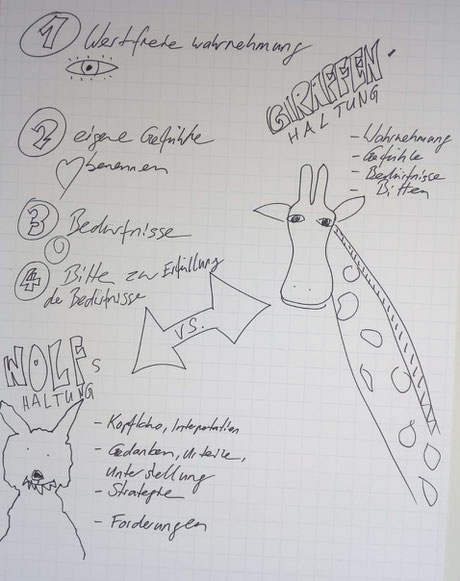 1 Wertfreie wahrnehmung
2 eigene Gefühle
benennen
3 Bedürfnisse
4 Bitte zur Erfüllung
der Bedürfnisse
GIRAFFEN-
HALTUNG
- Wahrnehmung
- Gefühle
- Bedürfnisse
- Bitten
VS.
WOLFS
HALTUNG
- Kopfkino, Interpretation
- Gedanken, Urteile,
Unterstellung
- Strategie
- Forderungen